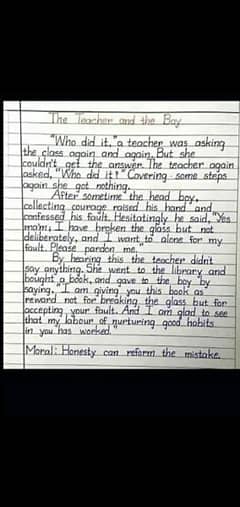 The Teacher and the Boy
"Who did it," a teacher was asking
the class again and again. But she
couldn't get the answer. The teacher again
asked, "Who did it!" Covering some steps
again she got nothing.
After sometime the head boy,
collecting courage raised his hand and
confessed his fault. Hesitatingly he said, "Yes
ma'm, I have broken the glass but not
deliberately, and I want to alone for my
fault. Please pardon me."
By hearing this the teacher didn't
say anything. She went to the library and
bought a book, and gave to the boy by
saying, "I am giving you this book as
reward not for breaking the glass but for
accepting your fault. And I am glad to see
that my labour of nurturing good habits
in you has worked."
Moral: Honesty can reform the mistake.